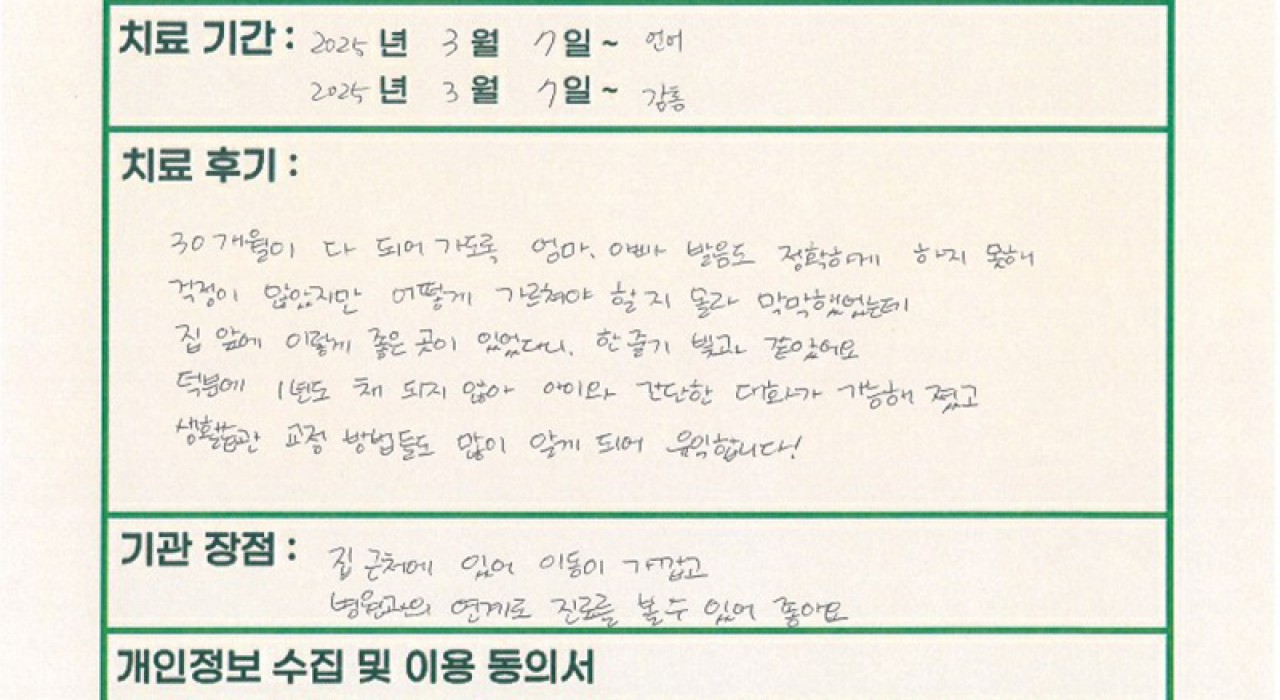 치료 기간 : 2025 년 3 월 7 일 ~ 언어
2025 년 3 월 7 일 ~ 감통
치료 후기 :
30개월이 다 되어 가도록 엄마, 아빠 발음도 정확하게 하지 못해
걱정이 많았지만 어떻게 가르쳐야 할지 몰라 막막했었는데
집 앞에 이렇게 좋은 곳이 있었다니, 한줄기 빛과 같았어요
덕분에 1년도 채 되지 않아 아이와 간단한 대화가 가능해 졌고
생활습관 교정 방법들도 많이 알게 되어 유익합니다!
기관 장점 : 집 근처에 있어 이동이 가깝고
병원과의 연계로 진료를 볼 수 있어 좋아요
개인정보 수집 및 이용 동의서